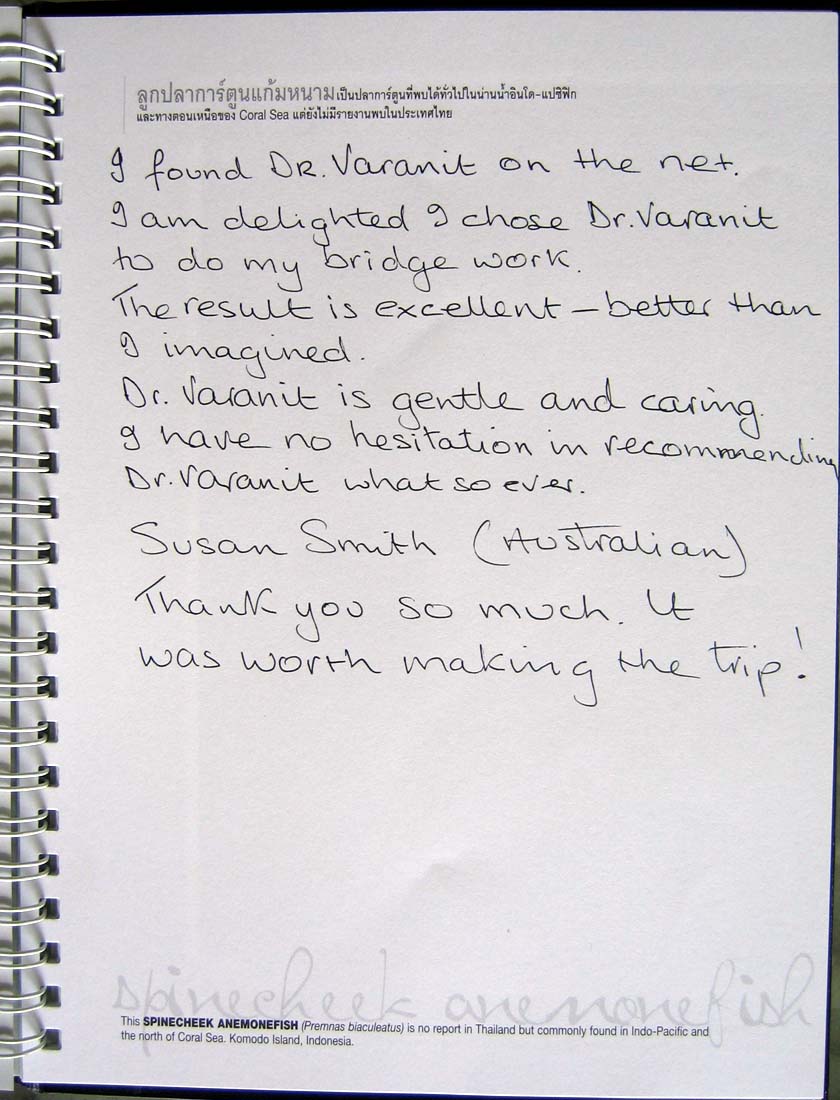 ลูกปลาการ์ตูนแก้มหนามเป็นปลาการ์ตูนที่พบได้ทั่วไปในน่านน้ำอินโด-แปซิฟิก
และทางตอนเหนือของ Coral Sea แต่ยังไม่มีรายงานพบในประเทศไทย
I found DR. Varanit on the net.
I am delighted I chose Dr. Varanit
to do my bridge work.
The result is excellent – better than
I imagined.
Dr. Varanit is gentle and caring.
I have no hesitation in recommending
Dr. Varanit what so ever.
Susan Smith (Australian)
Thank you so much. It
was worth making the trip!
spinecheek anemonefish
This SPINECHEEK ANEMONEFISH (Premnas biaculeatus) is no report in Thailand but commonly found in Indo-Pacific and
the north of Coral Sea. Komodo Island, Indonesia.